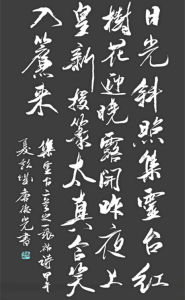 日光斜照集靈台紅
樹花迎曉露開昨夜上
皇新授籙太真含笑
入簾来
集靈台之一張祜詩
夏書